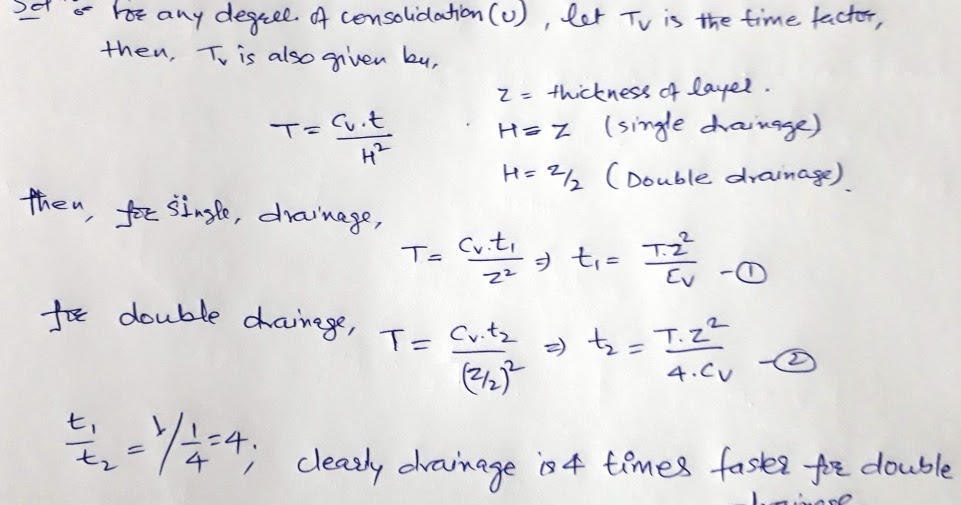 Sol :- for any degree of consolidation (U), let Tv is the time factor,
then, Tv is also given by,
z = thickness of layer.
T = Cv.t / H²
H = z (single drainage)
H = z/2 (Double drainage).
then, for single, drainage,
T = Cv.t₁ / z² ⇒ t₁ = T.z² / Cv -①
for double drainage, T = Cv.t₂ / (z/2)² ⇒ t₂ = T.z² / 4.Cv -②
t₁/t₂ = 1/(1/4) = 4; clearly drainage is 4 times faster for double
drainage